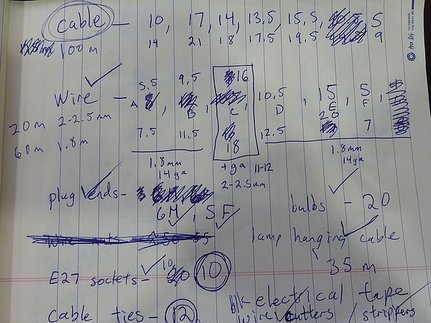 cable - 10, 17, 14, 13.5, 15.5, 5
100 m 14 21 18 17.5 19.5 9
5.5 9.5 16
Wire - A B, C, 10.5 D 15 E, 5 F,
20 m 2-2.5mm
60 m 1.8m 7.5 11.5 18 12.5 20 7
1.8mm 14ga +ga 11-12 2-2.5mm 1.8mm 14ga
plug ends -
6M, 5F bulbs - 20
lamp hanging cable
35 m
E27 sockets - 10
Cable ties - 12 blk electrical tape
wire cutters / strippers